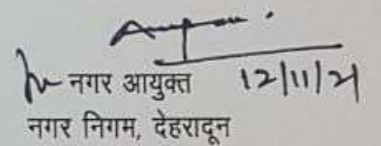 नगर आयुक्त 12/11/21
नगर निगम, देहरादून